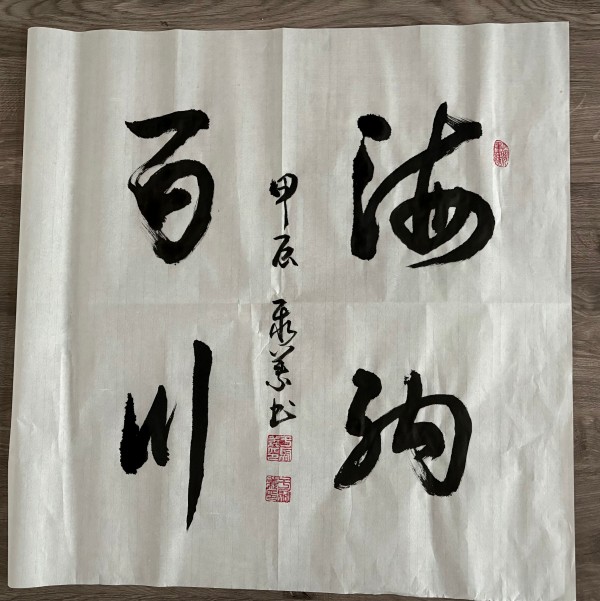 海纳
百川
甲辰
书